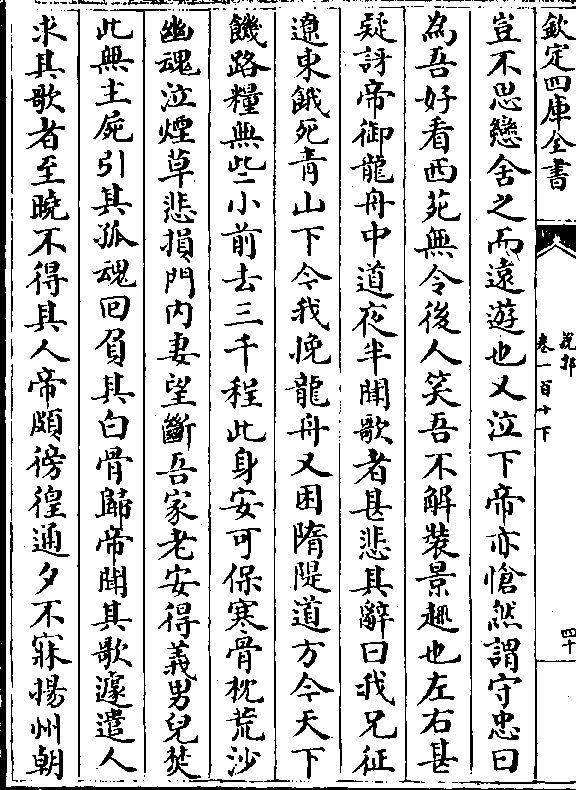 欽定四庫全書
說郛
卷一百十下
四十
豈不思戀舍之而遠遊也又泣下帝亦愴然謂守忠曰
為吾好看西苑無令後人笑吾不解裝景趣也左右甚
疑訝帝御龍舟中道夜半聞歌者甚悲其辭曰我兄征
遼東餓死青山下今我挽龍舟又困隋隄道方今天下
饑路糧無些小前去三千程此身安可保寒骨枕荒沙
幽魂泣煙草悲損門内妻望斷吾家老安得義男兒焚
此無主屍引其孤魂回負其白骨歸帝聞其歌遽遣人
求其歌者至曉不得其人帝頗徬徨通夕不寐揚州朝